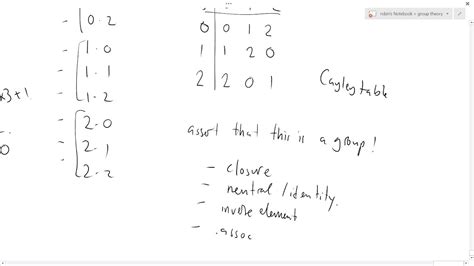 robin's Notebook » group theory
0·2
1·0
1·1
1·2
x3+1
2·0
2·1
2·2
0
0 0 1 2
1 1 2 0
2 2 0 1
Cayley table
assert that this is a group!
- closure
- neutral/identity.
- inverse element
- .assoc